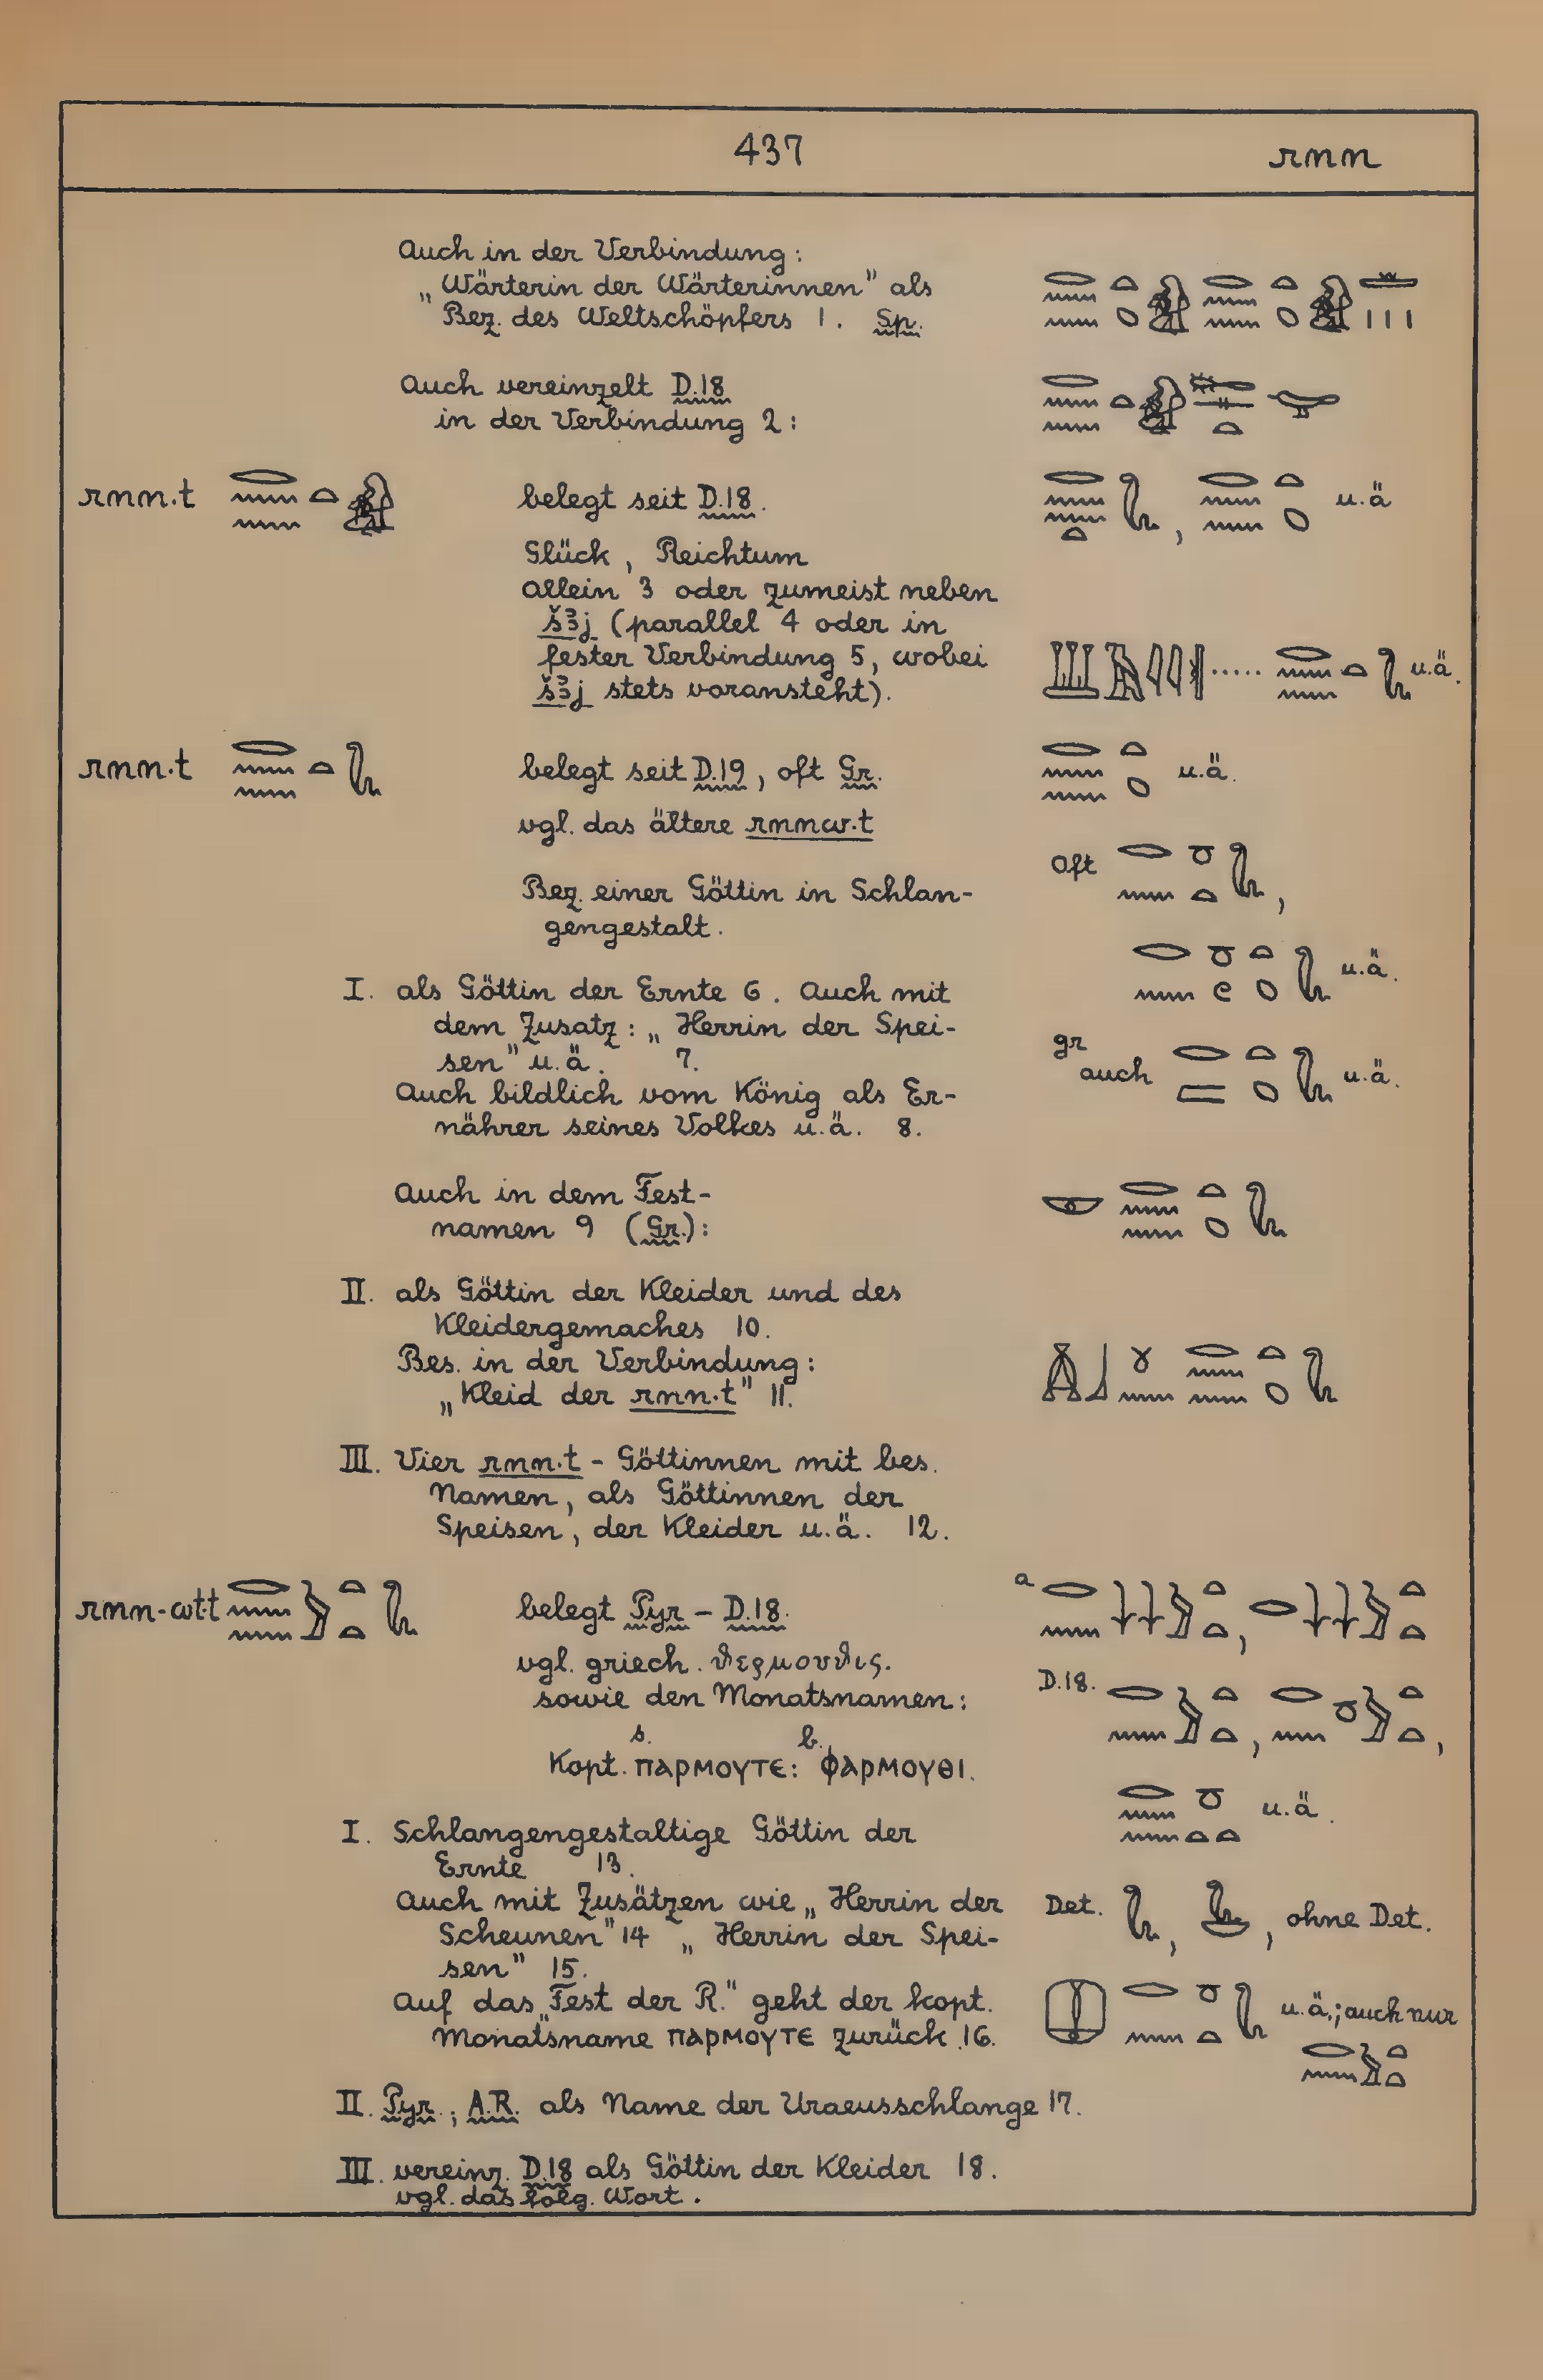 437 rnn
Auch in der Verbindung:
„Wärterin der Wärterinnen" als
Bez. des Weltschöpfers 1. Sp.
Auch vereinzelt D.18
in der Verbindung 2:
rnn.t belegt seit D.18. u.ä
Glück, Reichtum
allein 3 oder zumeist neben
šꜣj (parallel 4 oder in
fester Verbindung 5, wobei
šꜣj stets voransteht). u.ä.
rnn.t belegt seit D.19, oft Gr. u.ä.
vgl. das ältere rnnw.t
Oft
Bez. einer Göttin in Schlan-
gengestalt.
u.ä.
I. als Göttin der Ernte 6. Auch mit
dem Zusatz: „Herrin der Spei-
sen" u.ä. 7.
gr auch u.ä.
Auch bildlich vom König als Er-
nährer seines Volkes u.ä. 8.
Auch in dem Fest-
namen 9 (Gr.):
II. als Göttin der Kleider und des
Kleidergemaches 10.
Bes. in der Verbindung:
„Kleid der rnn.t" 11.
III. Vier rnn.t - Göttinnen mit bes.
Namen, als Göttinnen der
Speisen, der Kleider u.ä. 12.
rnn-wt.t belegt Pyr - D.18. a
vgl. griech. ϑερμουϑις.
sowie den Monatsnamen: D.18.
s. b.
Kopt. ⲡⲁⲣⲙⲟⲩⲧⲉ: ⲫⲁⲣⲙⲟⲩⲑⲓ.
u.ä.
I. Schlangengestaltige Göttin der
Ernte 13.
Auch mit Zusätzen wie „Herrin der
Scheunen" 14 „Herrin der Spei-
sen" 15.
Det. , , ohne Det.
Auf das „Fest der R." geht der kopt.
Monatsname ⲡⲁⲣⲙⲟⲩⲧⲉ zurück 16.
u.ä.; auch nur
II. Pyr.; A.R. als Name der Uraeusschlange 17.
III. vereinz. D.18 als Göttin der Kleider 18.
vgl. das folg. Wort.